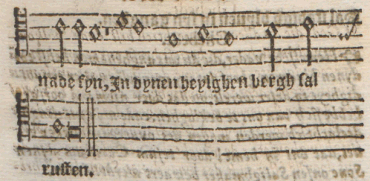 nade syn, In dynen heylghen bergh sal
rusten.